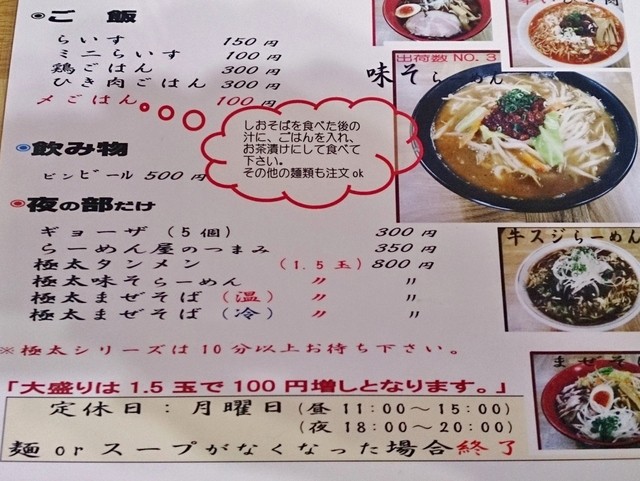 ご飯
らいす 150円
ミニらいす 100円
鶏ごはん 300円
ひき肉ごはん 300円
〆ごはん 100円
しおそばを食べた後の
汁に、ごはんを入れ、
お茶漬けにして食べて
下さい。
その他の麺類も注文ok
飲み物
ビンビール 500円
夜の部だけ
ギョーザ(5個) 300円
らーめん屋のつまみ 350円
極太タンメン (1.5玉) 800円
極太味そらーめん 〃 〃
極太まぜそば(温) 〃 〃
極太まぜそば(冷) 〃 〃
※極太シリーズは10分以上お待ち下さい。
「大盛りは1.5玉で100円増しとなります。」
定休日:月曜日(昼 11:00〜15:00)
(夜 18:00〜20:00)
麺orスープがなくなった場合終了
出荷数NO.3
味そらーめん
牛スジらーめん
まぜそ